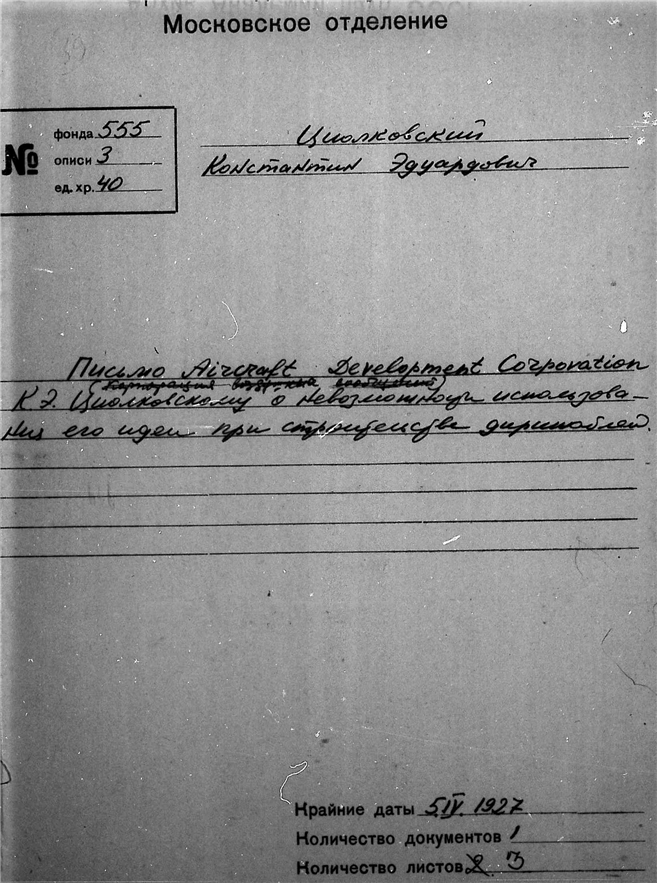 Московское отделение
№
фонда 555
описи 3
ед. хр. 40
Циолковский
Константин Эдуардович
Письмо Aircraft Development Corporation
(Корпорация воздушных сообщений)
К.Э. Циолковскому о невозможности использова-
ния его идеи при строительстве дирижаблей.
Крайние даты 5.IV.1927
Количество документов 1
Количество листов 2 3